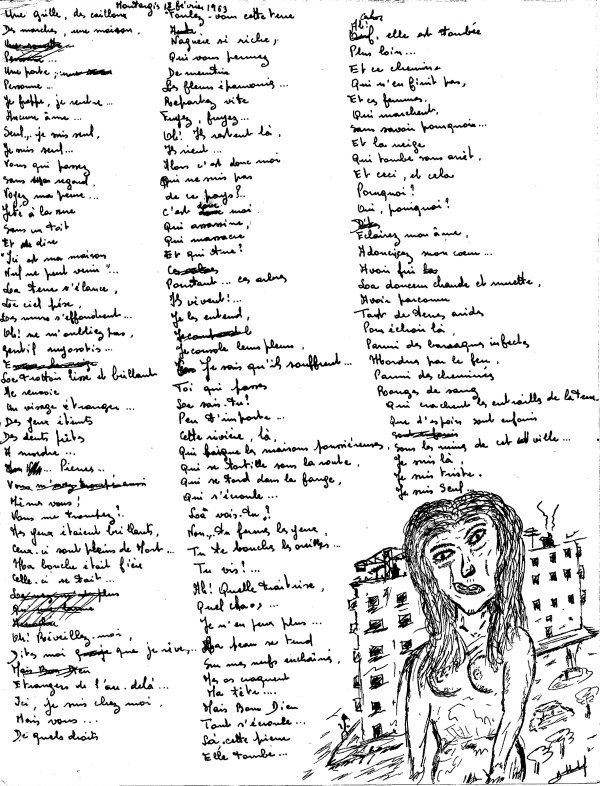 Montargis 12 février 1963
Une grille, des cailloux
Des marches, une maison,
Personne...
Une porte,
Personne...
Je frappe, je rentre...
Aucune âme...
Seul, je suis seul,
Je suis seul...
Vous qui passez
Sans regard,
Voyez ma peine...
Jeté à la rue
Sans un toit
Et dire
"Ici est ma maison
Nul ne peut venir"...
La terre s'élance,
Le ciel pèse,
Les murs s'effondrent...
Oh! ne m'oubliez pas,
Gentil myosotis...
Le trottoir lissé et brillant
Me renvoie
Un visage étranger...
Des yeux éteints
Des dents prêtes
A mordre...
Pierres...
Même vous!
Vous me trompez?
Mes yeux étaient brillants,
Ceux-ci sont pleins de Mort...
Ma bouche était fière
Celle-ci se tait...
Oh! Réveillez-moi,
Dites moi que je rêve...
Mais Bon Dieu
Etrangers de l'au-delà...
Ici, je suis chez moi,
Mais vous...
De quels droits
Foulez-vous cette terre
Naguère si riche,
Qui vous permez
De meurtrir
Les fleurs épanouies...
Repartez vite
Fuyez, fuyez...
Oh! Ils restent là,
Ils rient...
Alors c'est donc moi
Qui ne suis pas
de ce pays?..
C'est donc moi
Qui assassine,
Qui massacre
Et qui tue?
Pourtant... ces arbres
Ils vivent!...
Je les entend,
Je console leurs pleurs,
Je sais qu'ils souffrent...
Toi qui passes
Le sais-tu?
Peu t'importe...
Cette rivière, là,
Qui baigne les maisons poussiéreuses,
Qui se tortille sous la route,
Qui se tord dans la fange,
Qui s'écroule...
La vois-tu?
Non, tu fermes les yeux,
Tu te bouches les oreilles...
Tu vis!...
Ah! Quelle traitrise,
Quel chaos,...
Je n'en peux plus...
Ma peau se tend
Sur mes nerfs enchaînés,
Mes os craquent
Ma tête....
Mais Bon Dieu
Tout s'écroule...
Là, cette pierre
Elle tombe...
Ah!
elle est tombée
Plus loin...
Et ce chemin
Qui n'en finit pas,
Et ces femmes,
Qui marchent,
Sans savoir pourquoi...
Et la neige
Qui tombe sans arrêt,
Et ceci, et cela
Pourquoi?
Oui, pourquoi?
Eclairez mon âme,
Adoucissez mon coeur...
Avoir fui
La douceur chaude et muette,
Avoir parcouru
Tant de terres arides
Pour échoir là,
Parmi des baraques infectes
Mordues par le feu,
Parmi des cheminées
Rouges de sang
Qui crachent les entrailles de la terre
Que d'espoirs sont enfouis
Sous les ruines de cette ville...
Je suis là,
Je suis triste,
Je suis Seul